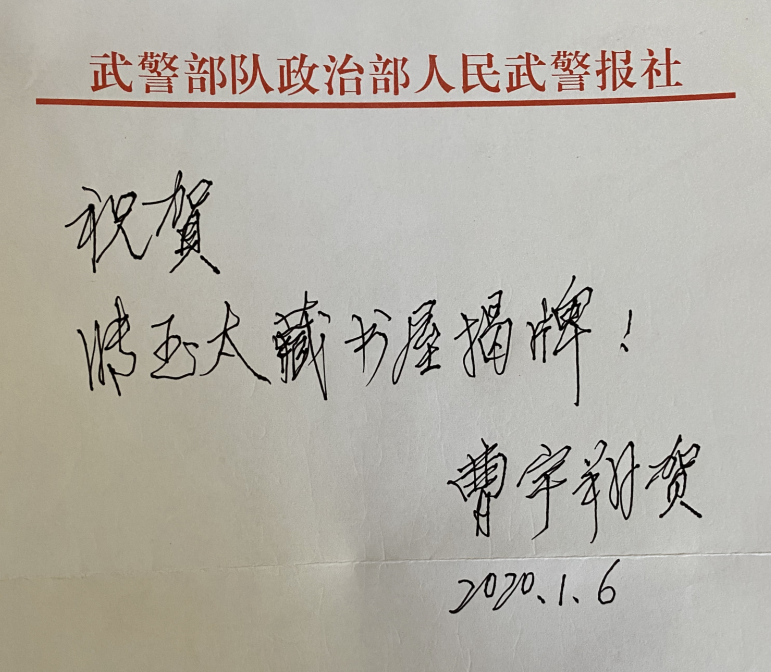 武警部队政治部人民武警报社
祝賀
玉太藏书屋揭牌！
曹宇翔贺
2020.1.6